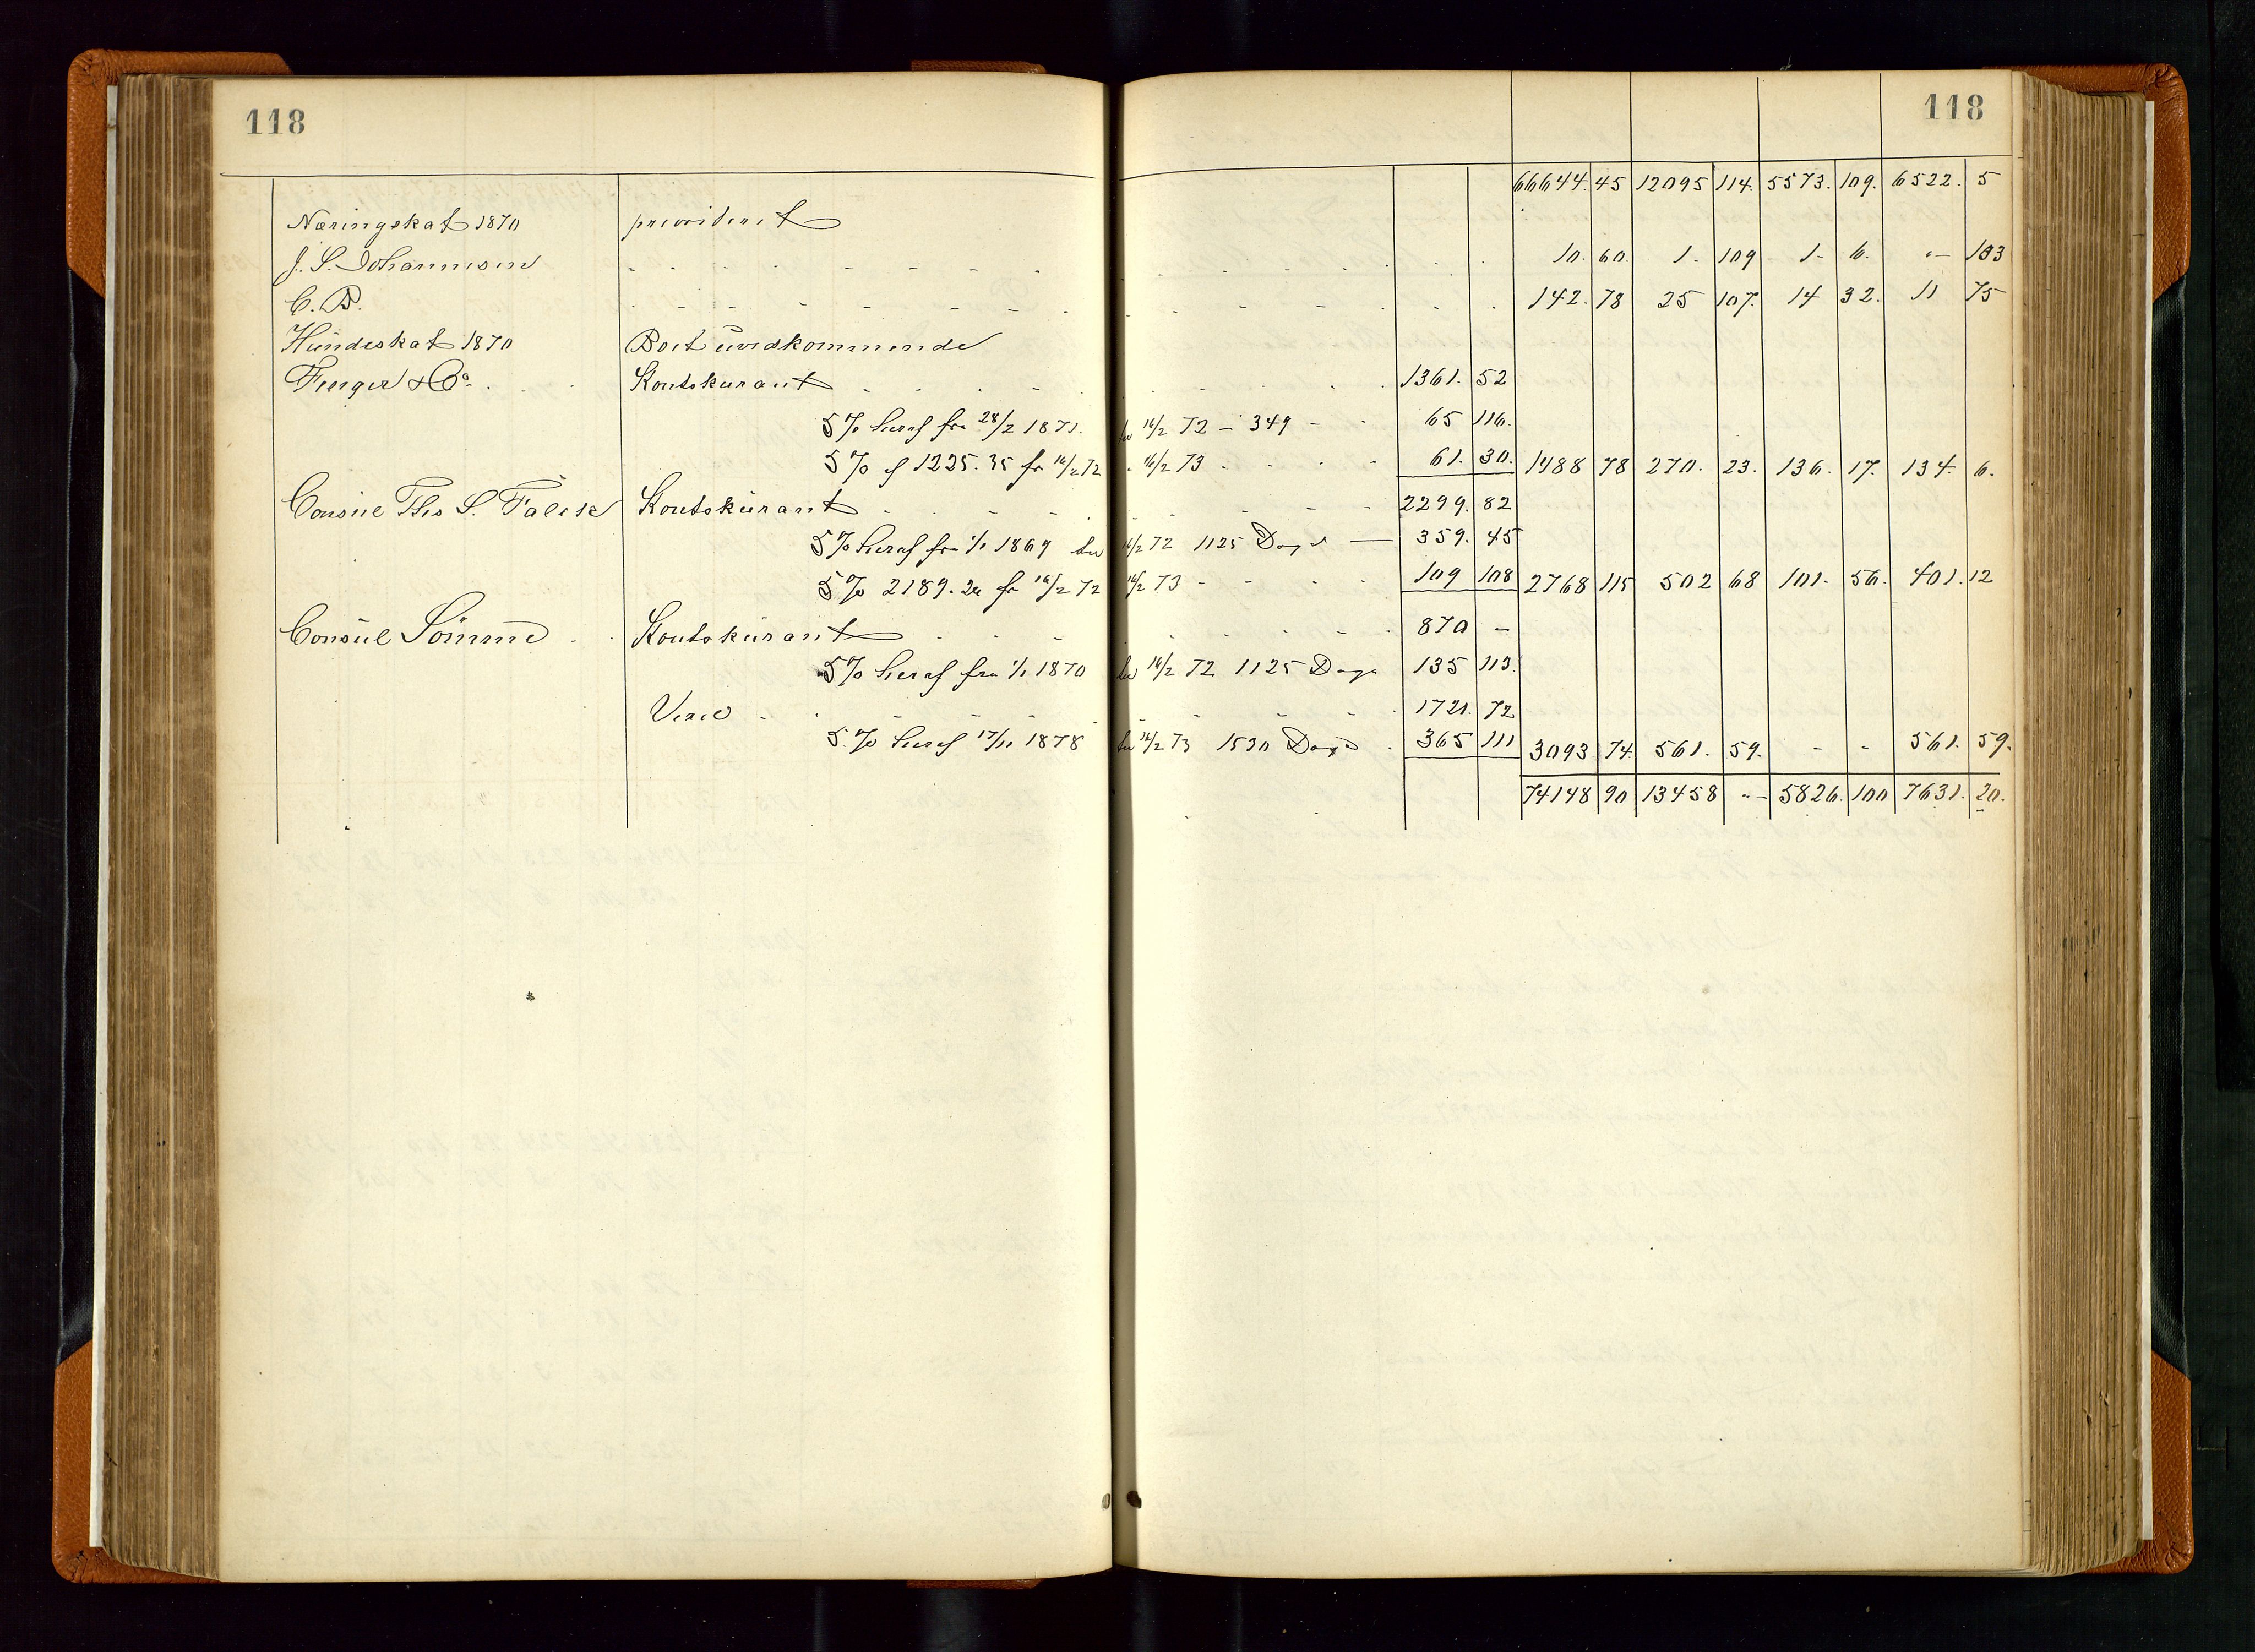 118 118
66644. 45 12095 114. 5573. 109. 6522. 5
Næringskat 1870 prioriteret
J. S. Johannesen - - - 10. 60. 1. 109 1. 6. "- 103
C. B. - - - 142. 78 25 107. 14 32. 11 75
Hundeskat 1870 Boet uvedkommende
Fleger & Co. Kontokurant - - - 1361. 52
5 % heraf fra 28/2 1871. til 16/2 72 - 349 - 65 116.
5 % af 1225. 35 fra 16/2 72 - 16/2 73 - 61. 30. 1488 78 270. 23. 136. 17. 134. 6.
Consul Ths S. Falck Kontokurant - - - 2299. 82
5 % heraf fra 1/1 1869 til 16/2 72 1125 Dage — 359. 45
5 % 2189. 24 fra 16/2 72 16/2 73 - - 109 108 2768 115 502 68 101. 56. 401. 12
Consul Sömme Kontokurant - - - 870 -
5 % heraf fra 1/1 1870 til 16/2 72 1125 Dage 135 113.
Vexel - - - 1721. 72
5. % heraf 17/11 1878 til 16/2 73 1530 Dage 365 111 3093 74. 561. 59. - - 561. 59.
74148 90 13458 "- 5826. 100 7631. 20.